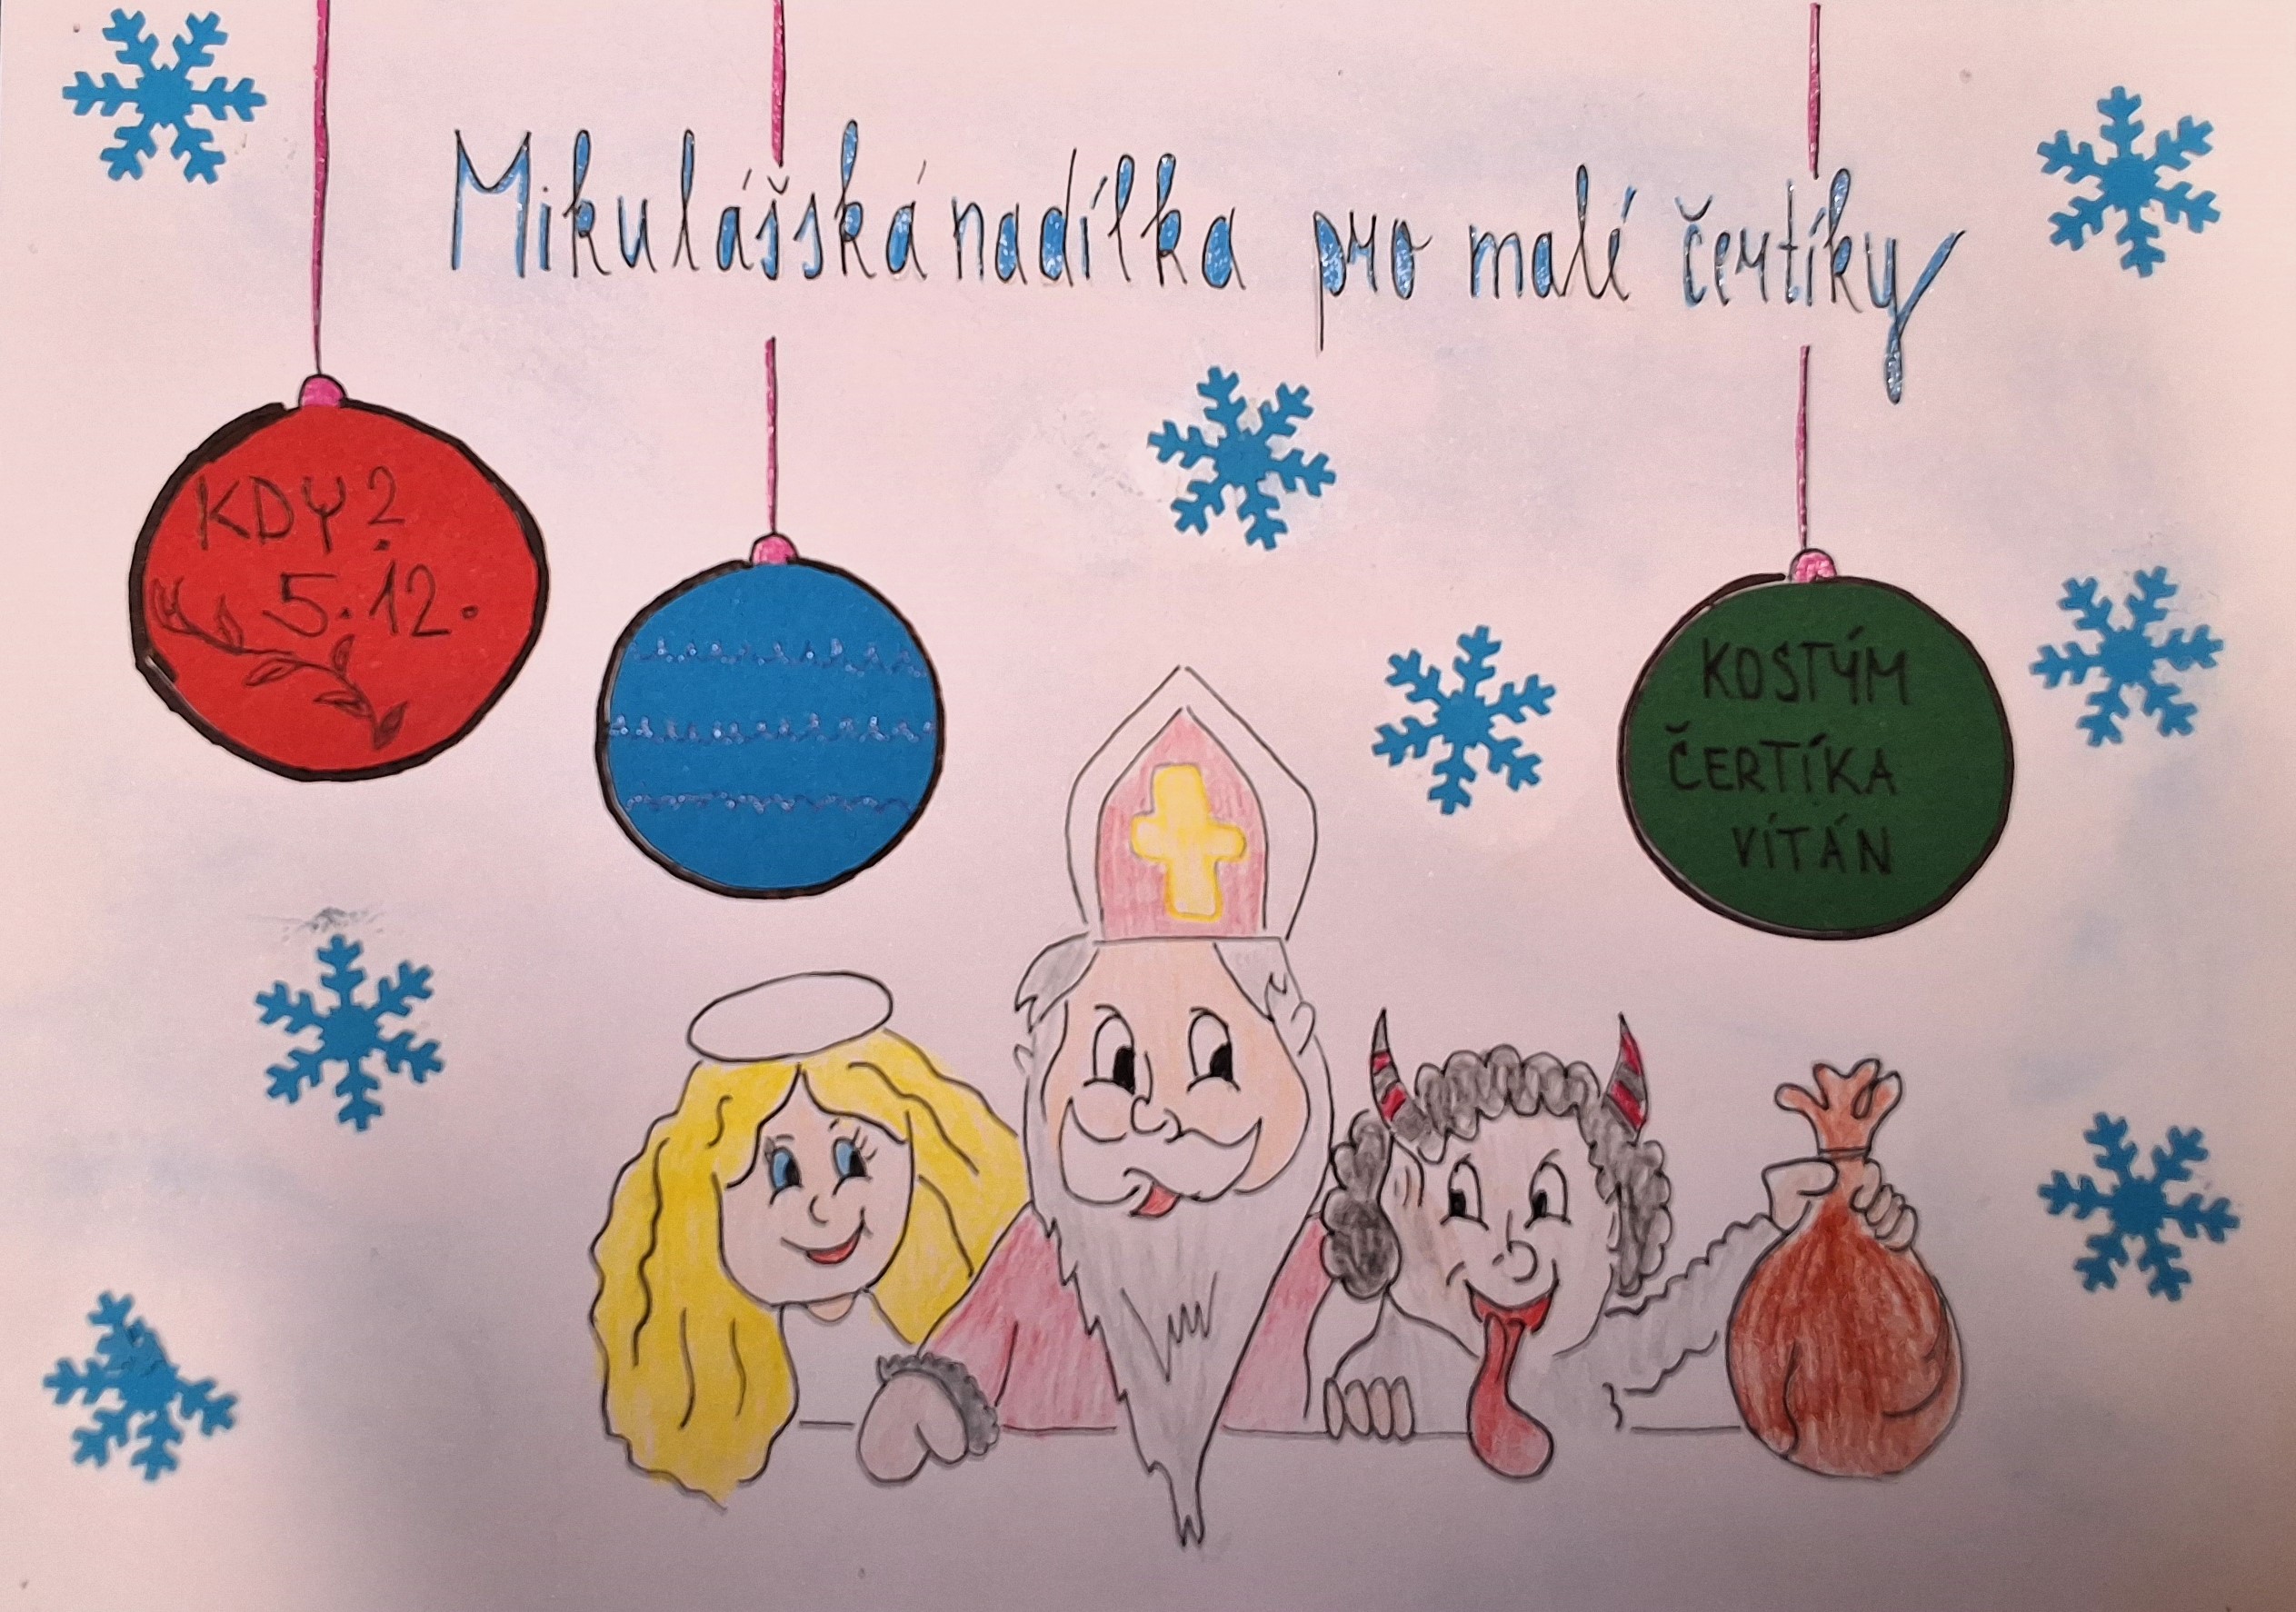 Mikulášská nadílka pro malé čertíky
KDY?
5.12.
KOSTÝM
ČERTÍKA
VÍTÁN